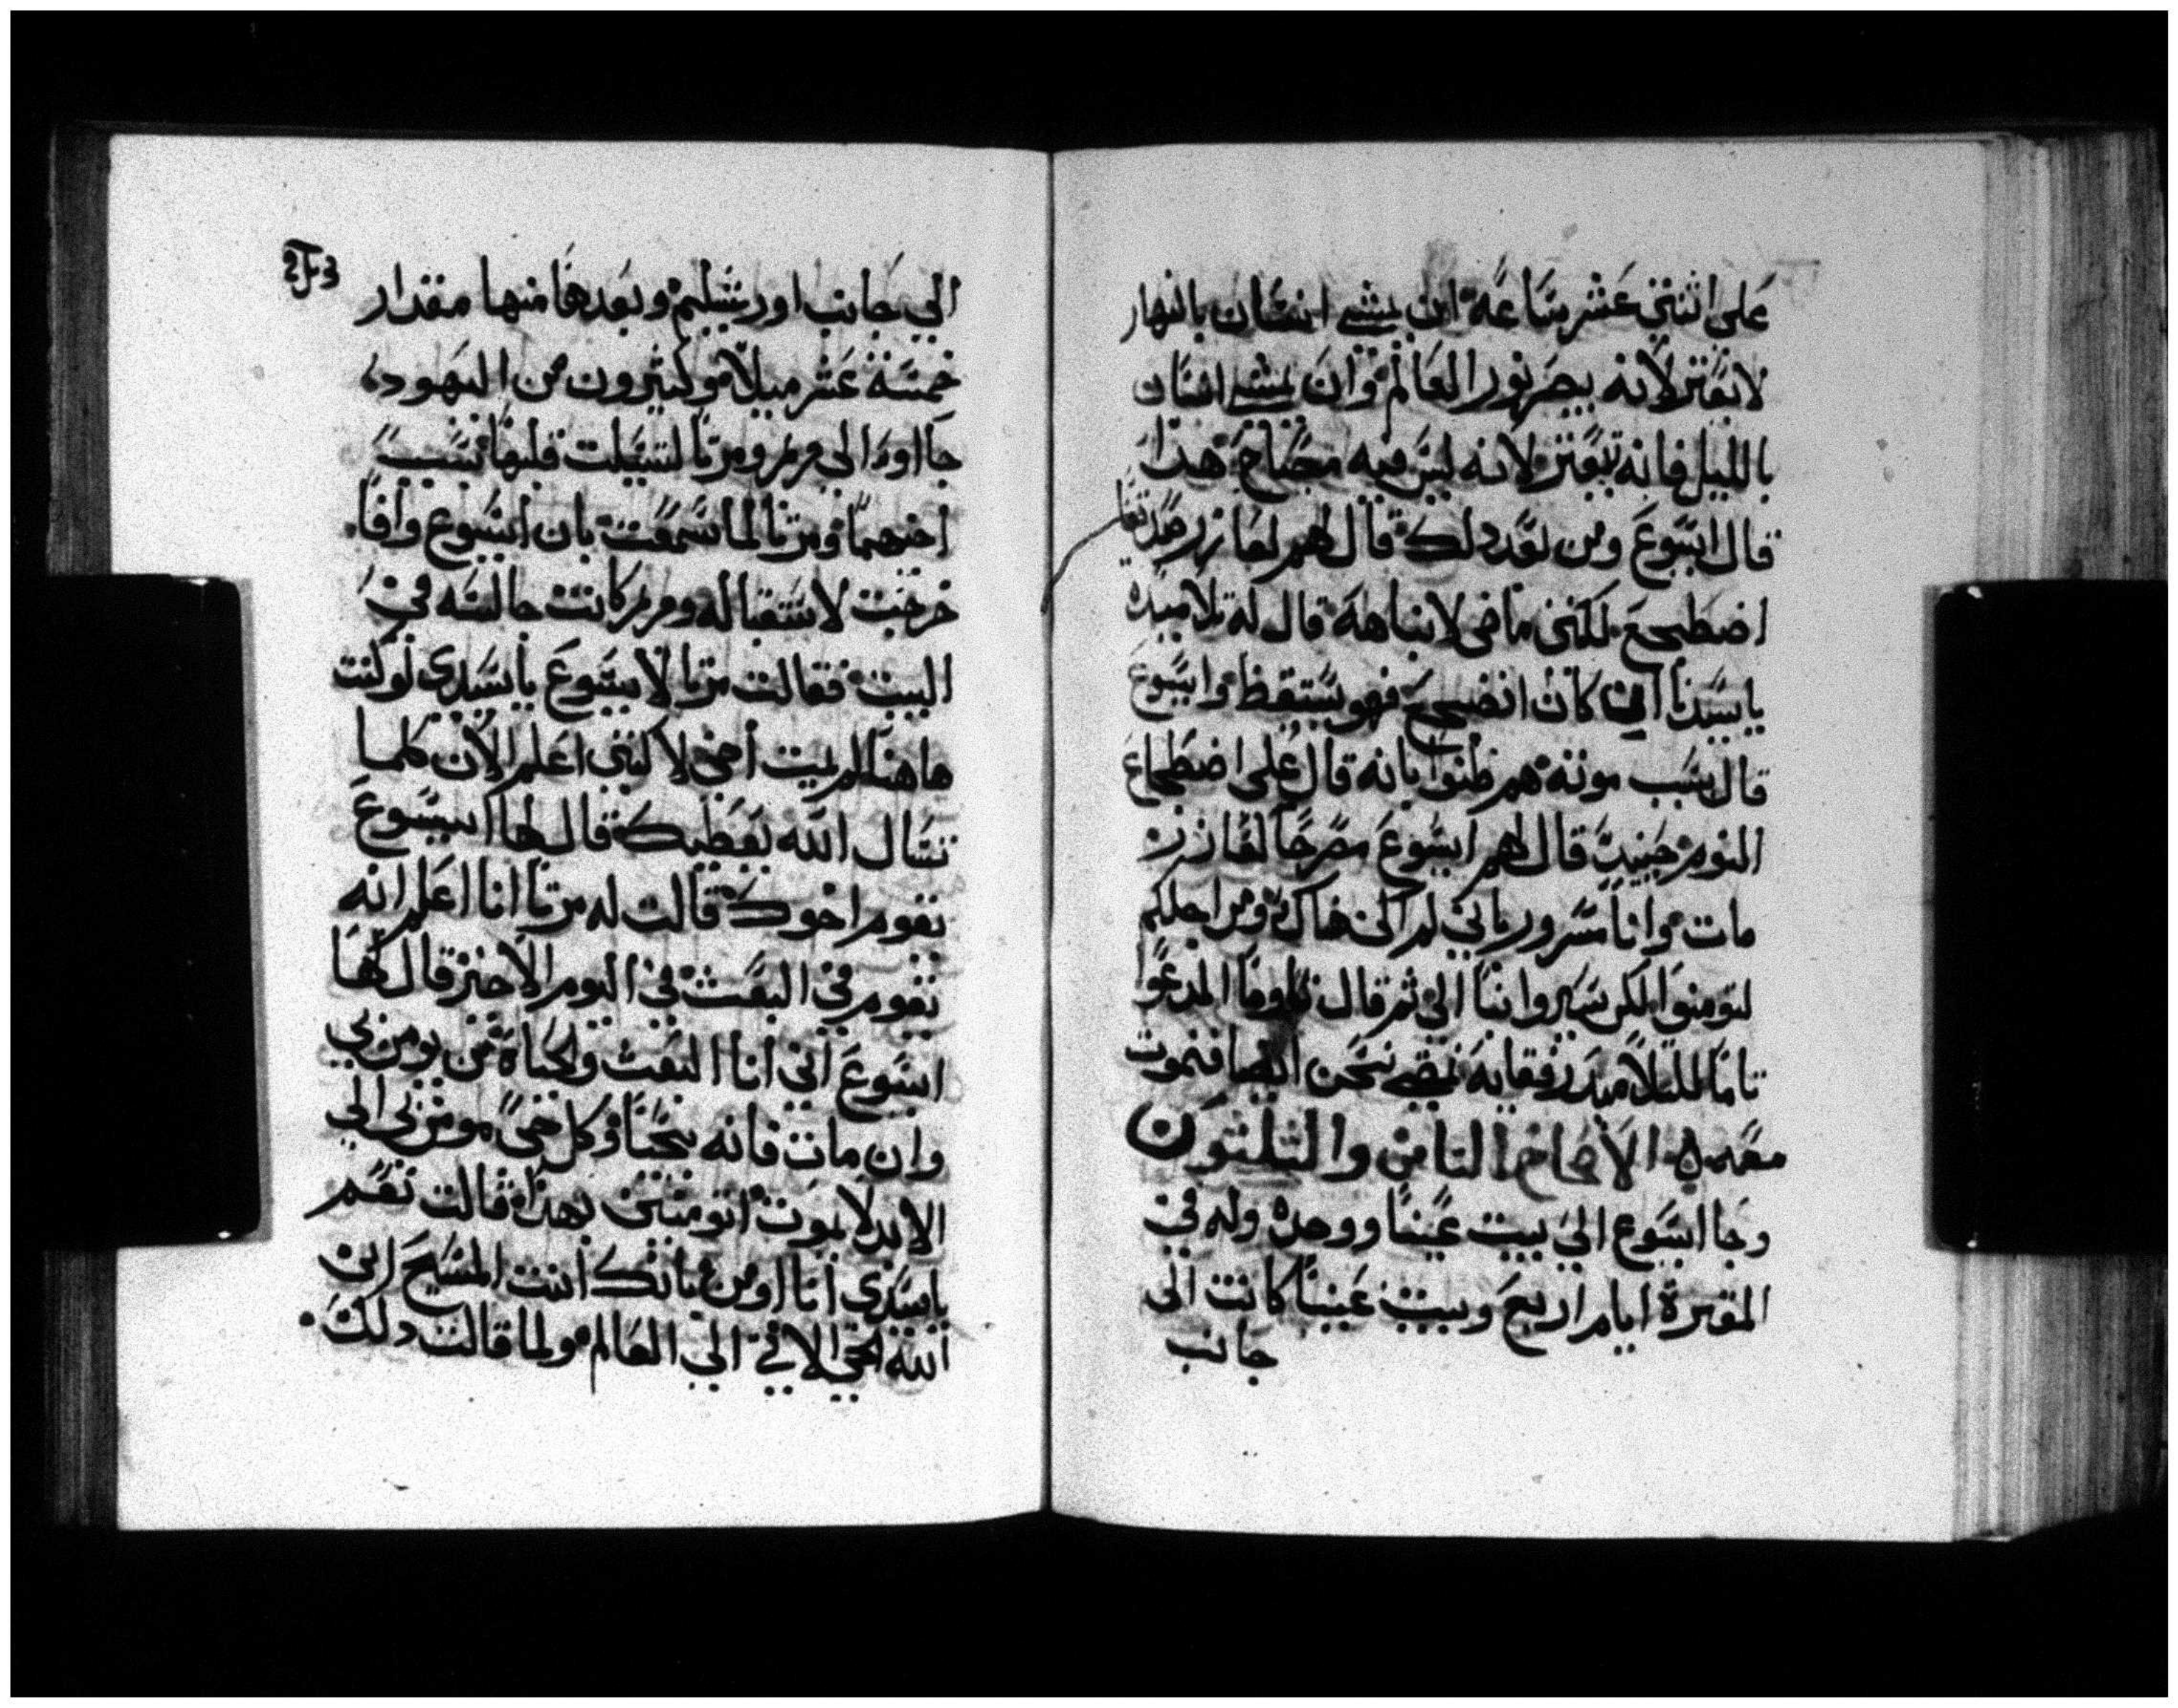 على اثنتي عشر ساعة ان يمشي انسان بالنهار
لا يعتر لانه يبصر نور العالم وان يمشي انسان
بالليل فانه يتعتر لانه ليس فيه مصباح هدا
قال ايسوع ومن بعد دلك قال لهم لعازر صديقنا
اضطجع لكنني ماضي لانباهه قال له تلاميده
يا سيدنا ان كان انضجع فهو يستيقظ وايسوع
قال بسبب موته هم ظنوا بانه قال على اضطجاع
النوم حينيد قال لهم ايسوع مصرحا لعازر
مات وانا مسرور باني لم اكن هناك ومن اجلكم
لتومنوا لكن سيروا بنا الي ثم قال توما المدعوا
تاما للتلاميد رفقايه نمضي نحن ايضا فنموت
معه الاصحاح التامن والتلتون
وجا ايسوع الي بيت عنيا ووجده وله في
المقبرة ايام اربع وبيت عنيا كانت الى
جانب
الي جانب اورشليم وبعدها منها مقدار
خمسة عشر ميلا وكتيرون من اليهود
جااوا الى مريم ومرتا لتسلت قلبها بسبب
اخيهما ومرتا لما سمعت بان ايسوع وافا
خرجت لاستقباله ومريم كانت جالسه في
البيت فقالت مرتا لايسوع يا سيدي لو كنت
هاهنا لم يميت اخي لاكنني اعلم الان كلما
تسال الله يعطيك قال لها ايسوع
يقوم اخوك قالت له مرتا انا اعلم انه
يقوم في البعث في اليوم الاخير قال لها
ايسوع انني انا البعث والحياة من يومن بي
وان مات فانه يحيا وكل حي مومن بي الي
الابد لا يموت اتومنين بهدا قالت نعم
يا سيدي انا اومن بانك انت المسيح ابن
الله الحي الاتي الي العالم ولما قالت دلك